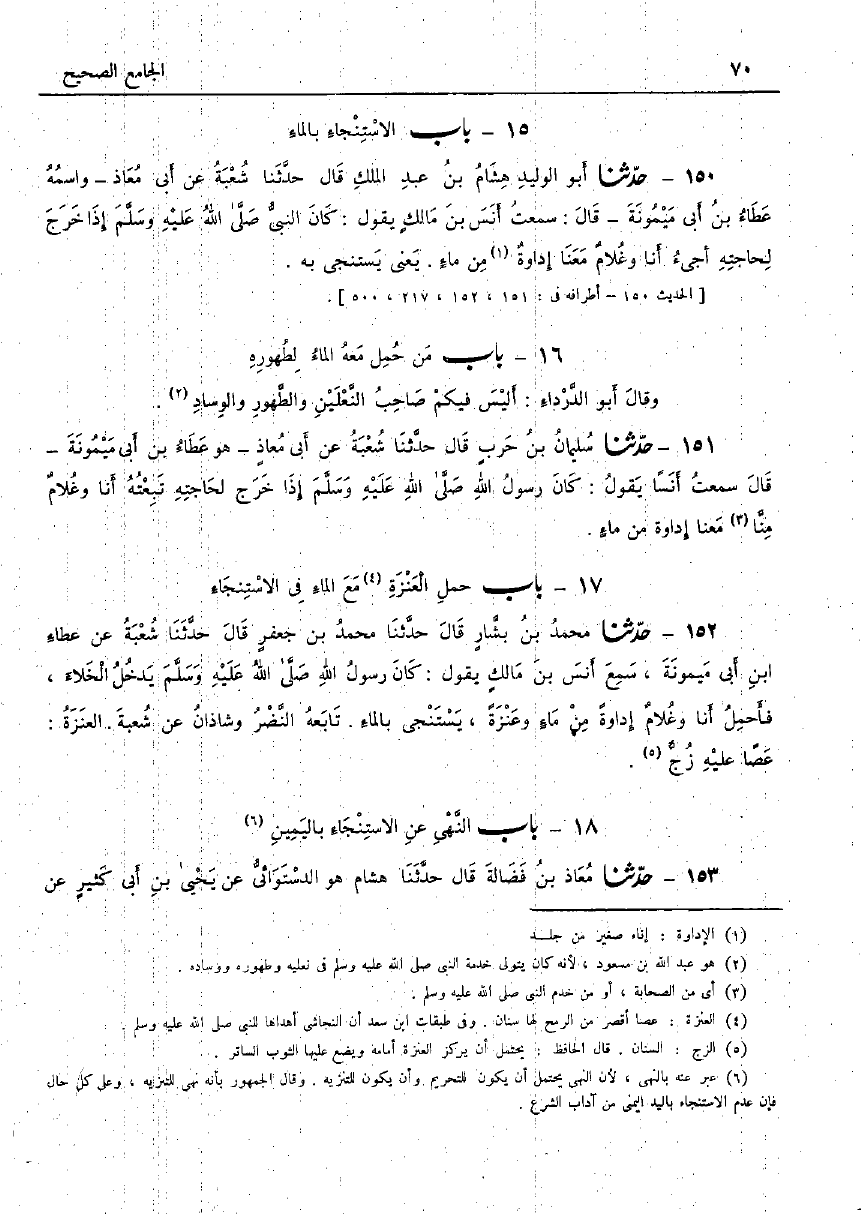 ٧٠ الجامع الصحيح
١٥ – باب الاسْتِنْجاءِ بالماءِ
١٥٠ – حدّثنا أبو الوليدِ هِشَامُ بنُ عبدِ الملكِ قال حدَّثَنا شُعْبَةُ عن أَبى مُعَاذ – واسمُهُ
عَطَاءُ بنُ أَبى مَيْمُونَةَ – قالَ : سمعتُ أَنَسَ بنَ مَالكٍ يقول : كَانَ النبىُّ صَلَّى اللهُ عَلَيْهِ وَسَلَّمَ إِذَا خَرَجَ
لِحاجتِهِ أَجىءُ أَنا وغُلامٌ مَعَنَا إِداوةٌ (١) مِن ماءٍ . يَعْنى يَستنجى به .
[ الحديث ١٥٠ – أطرافه فى : ١٥١ ، ١٥٢ ، ٢١٧ ، ٥٠٠ ] .
١٦ – باب مَن حُمِل مَعَهُ الماءُ لِطُهورِهِ
وقالَ أَبو الدَّرْداءِ : أَلَيْسَ فيكمْ صَاحِبُ النَّعْلَيْنِ والطَّهورِ والوِسادِ (٢) .
١٥١ – حدّثنا سُليمانُ بنُ حَربٍ قال حدَّثَنَا شُعْبَةُ عن أَبى مُعاذٍ – هو عَطَاءُ بن أَبى مَيْمُونَةَ –
قَالَ سمعتُ أَنَسًا يَقولُ : كَانَ رسولُ اللهِ صَلَّى اللهُ عَلَيْهِ وَسَلَّمَ إِذَا خَرَج لحَاجتِهِ تَبِعْتُهُ أَنا وغُلامٌ
مِنَّا (٣) مَعنا إِداوة من ماءٍ .
١٧ – باب حملِ الْعَنْزَةِ (٤) مَعَ الماءِ فى الاسْتِنجَاءِ
١٥٢ – حدّثنا محمدُ بنُ بشَّارٍ قَالَ حدَّثَنَا محمدُ بن جعفرٍ قَالَ حدَّثَنَا شُعْبَةُ عن عطاءِ
ابنِ أَبى مَيمونَةَ ، سَمِعَ أَنسَ بنَ مَالكٍ يقول : كَانَ رسولُ اللهِ صَلَّى اللهُ عَلَيْهِ وَسَلَّمَ يَدخُلُ الْخَلاءَ ،
فَأَحمِلُ أَنا وغُلامٌ إِداوةً مِنْ مَاءٍ وعَنْزَةً ، يَسْتَنْجى بالماءِ . تَابَعَهُ النَّضْرُ وشاذانُ عن شُعبةَ . العنَزَةُ :
عَصًا عليْهِ زُجٌّ (٥) .
١٨ – باب النَّهْىِ عنِ الاستِنْجَاءِ باليَمِينِ (٦)
١٥٣ – حدّثنا مُعَاذ بنُ فَضَالةَ قَال حدَّثَنَا هشام هو الدسْتَوَائىُّ عن يَحْيىٰ بنِ أَبى كَثيرٍ عن
(١) الإداوة : إناء صغير من جلد
(٢) هو عبد الله بن مسعود ، لأنه كان يتولى خدمة النبى صلى الله عليه وسلم فى نعليه وطهوره ووساده .
(٣) أى من الصحابة ، أو من خدم النبى صلى الله عليه وسلم .
(٤) العنزة : عصا أقصر من الرمح لها سنان . وفى طبقات ابن سعد أن النجاشى أهداها للنبى صلى الله عليه وسلم .
(٥) الزج : السنان . قال الحافظ : يحتمل أن يركز العنزة أمامه ويضع عليها الثوب الساتر .
(٦) عبر عنه بالنهى ، لأن النهى يحتمل أن يكون للتحريم وأن يكون للتنزيه . وقال الجمهور بأنه نهى للتنزيه ، وعلى كل حال
فإن عدم الاستنجاء باليد اليمنى من آداب الشرع .